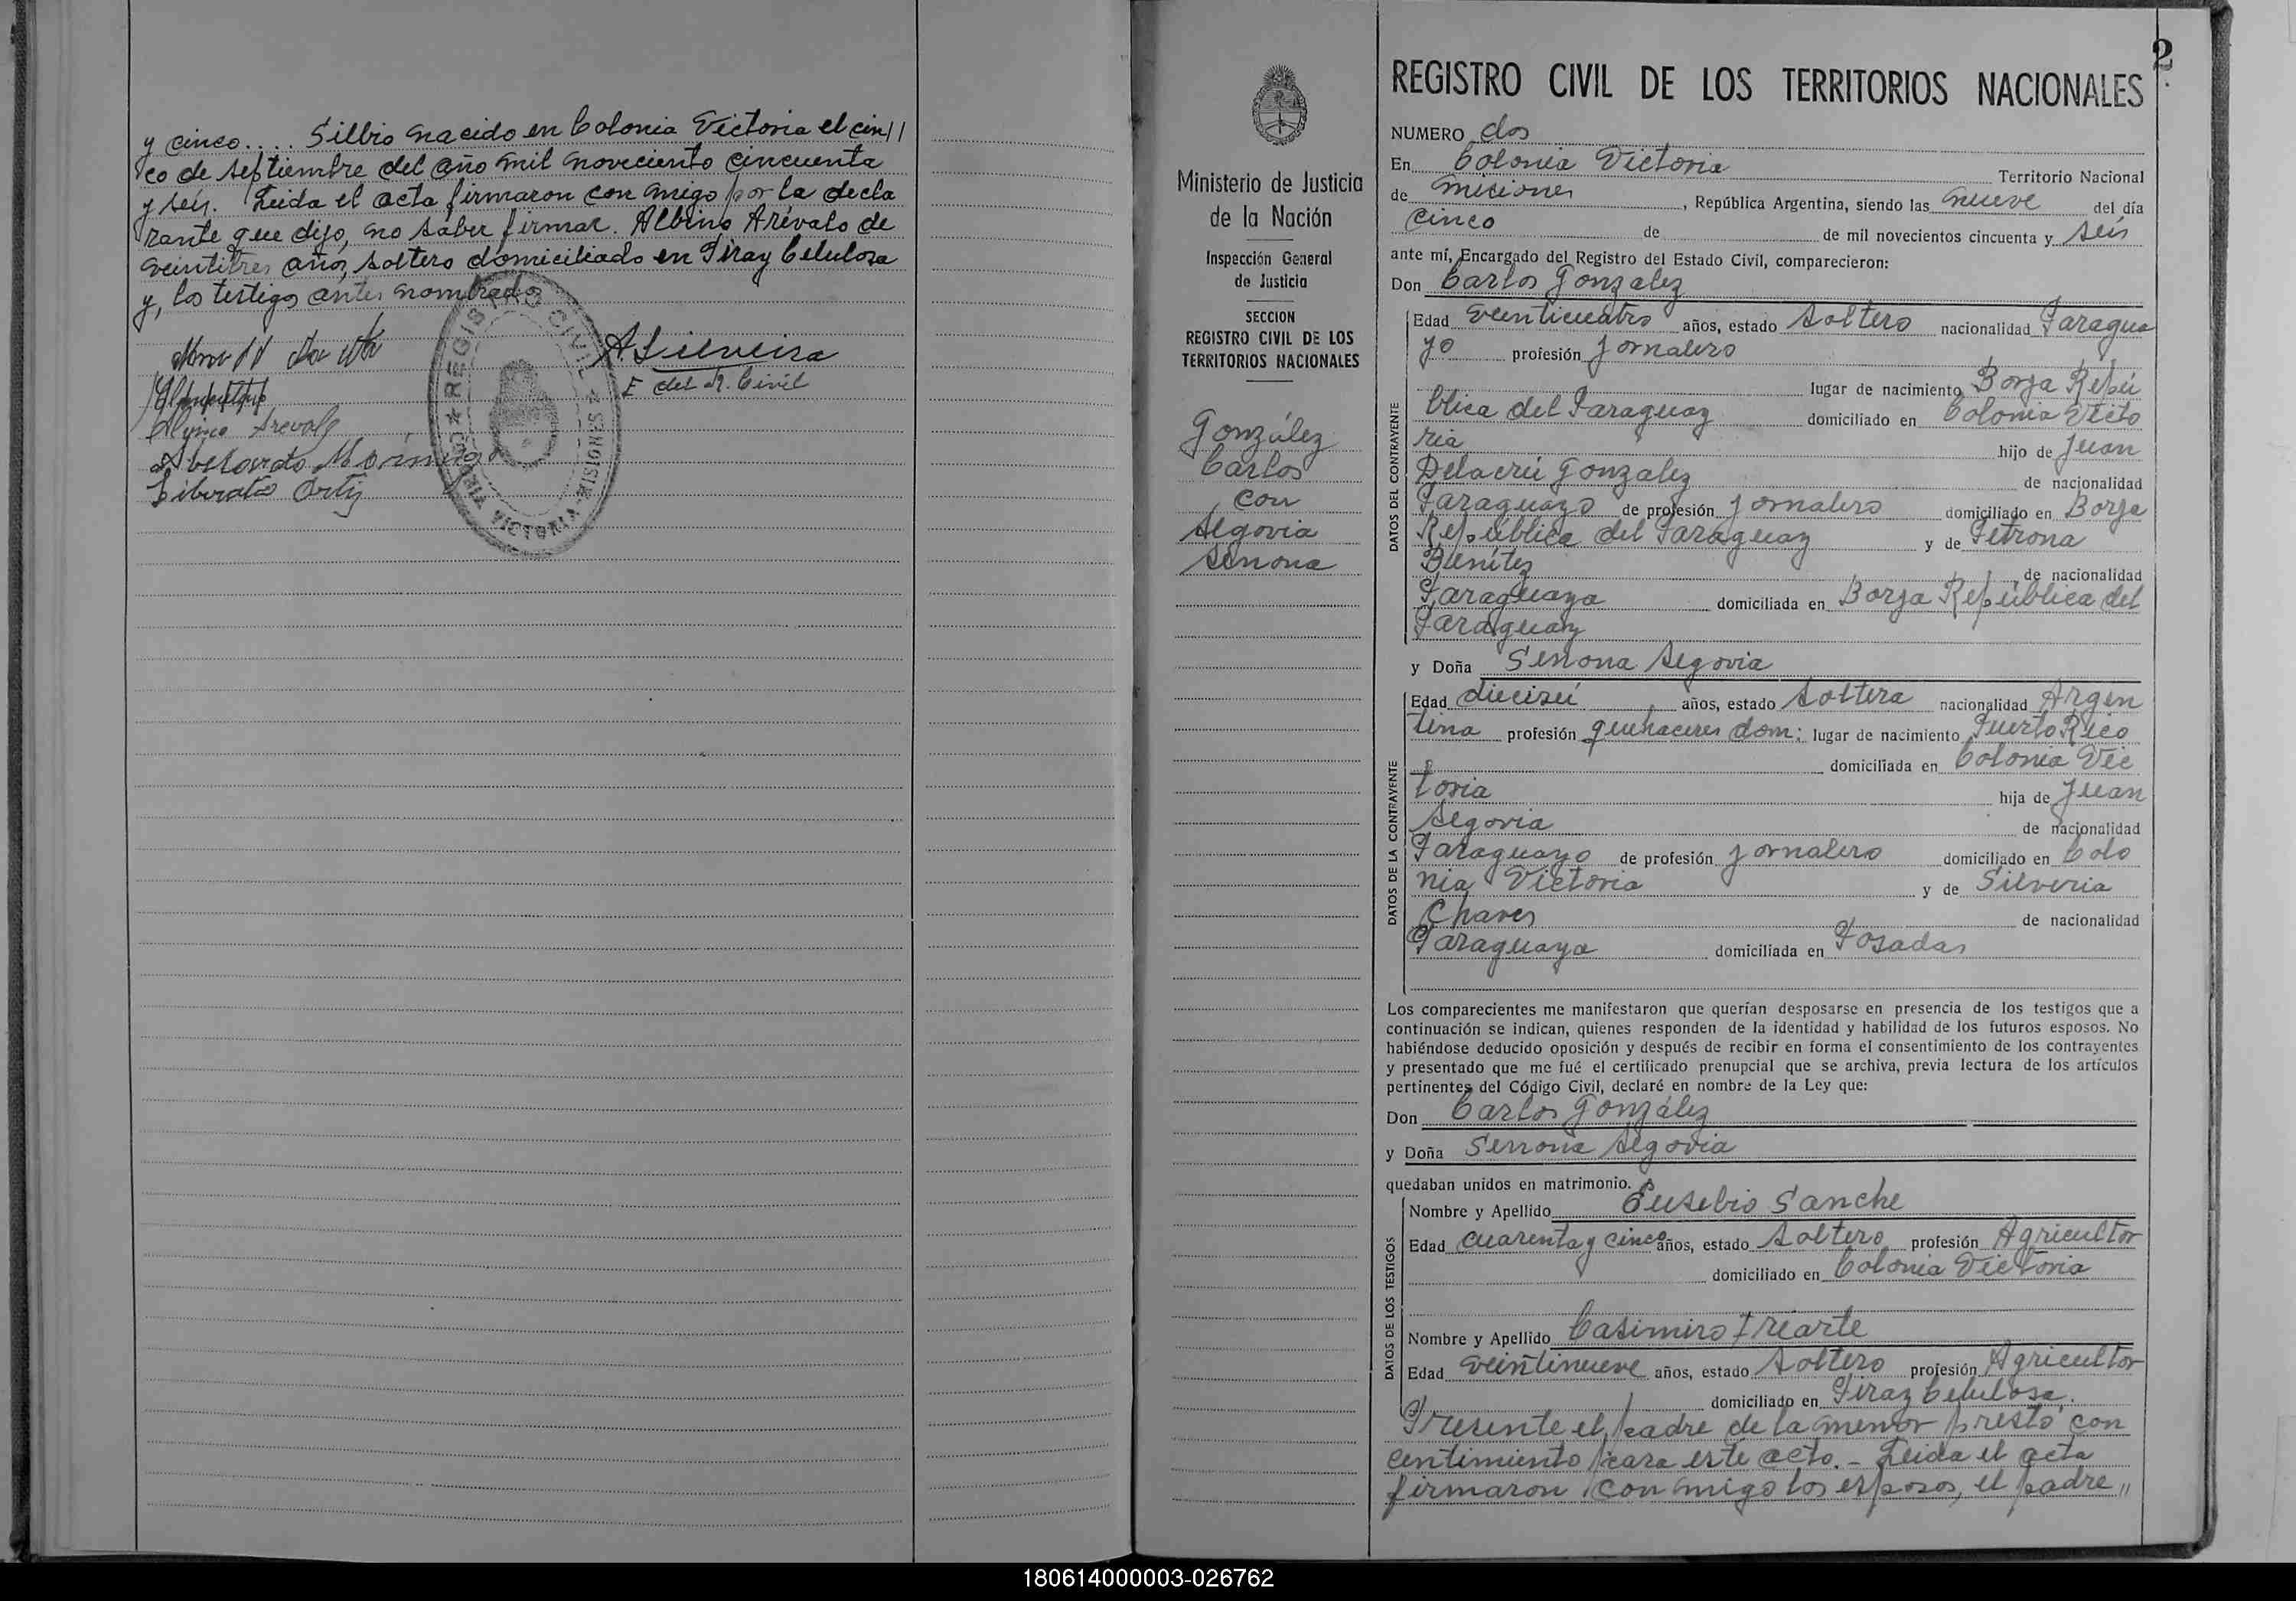 y cinco.... Silbio nacido en Colonia Victoria el cin//
co de septiembre del año mil noveciento cincuenta
y seis. Leida el acta firmaron con migo por la decla
rante que dijo, no saber firmar. Albino Arévalo de
veintitres años, soltero domiciliado en Piray Celulosa
y, los testigos antes nombrados
ASilveira
E del R. Civil
Albino Arevalo
Abelardo
Liberato Ortiz
REGISTRO CIVIL
VICTORIA MISIONES
2
Ministerio de Justicia
de la Nación
Inspección General
de Justicia
SECCION
REGISTRO CIVIL DE LOS
TERRITORIOS NACIONALES
González
Carlos
con
Segovia
Senona
REGISTRO CIVIL DE LOS TERRITORIOS NACIONALES
NUMERO dos
En Colonia Victoria Territorio Nacional
de misiones, República Argentina, siendo las nueve del día
cinco de de mil novecientos cincuenta y seis
ante mí, Encargado del Registro del Estado Civil, comparecieron:
Don Carlos Gonzalez
DATOS DEL CONTRAYENTE
Edad veinticuatro años, estado soltero nacionalidad Paragua
yo profesión Jornalero
lugar de nacimiento Borja Repú
blica del Paraguay domiciliado en Colonia Victo
ria hijo de Juan
Delacrú Gonzalez de nacionalidad
Paraguayo de profesión Jornalero domiciliado en Borja
República del Paraguay y de Petrona
Benítez, de nacionalidad
Paraguaya domiciliada en Borja República del
Paraguay
y Doña Senona Segovia
DATOS DE LA CONTRAYENTE
Edad dieciséi años, estado soltera nacionalidad Argen
tina profesión quehaceres dom: lugar de nacimiento Puerto Rico
domiciliada en Colonia Vic
toria hija de Juan
Segovia de nacionalidad
Paraguayo de profesión Jornalero domiciliado en Colo
nia Victoria y de Silveria
Chaves de nacionalidad
Paraguaya domiciliada en Posadas
Los comparecientes me manifestaron que querían desposarse en presencia de los testigos que a
continuación se indican, quienes responden de la identidad y habilidad de los futuros esposos. No
habiéndose deducido oposición y después de recibir en forma el consentimiento de los contrayentes
y presentado que me fué el certificado prenupcial que se archiva, previa lectura de los artículos
pertinentes del Código Civil, declaré en nombre de la Ley que:
Don Carlos González
y Doña Senona Segovia
quedaban unidos en matrimonio.
DATOS DE LOS TESTIGOS
Nombre y Apellido Eusebio Sanche
Edad cuarenta y cinco años, estado soltero profesión Agricultor
domiciliado en Colonia Victoria
Nombre y Apellido Casimiro Iriarte
Edad veintinueve años, estado soltero profesión Agricultor
domiciliado en Piray Celulosa.
Presente el padre de la menor prestó con
centimiento para este acto.- Leida el acta
firmaron con migo los esposos, el padre //
180614000003-026762